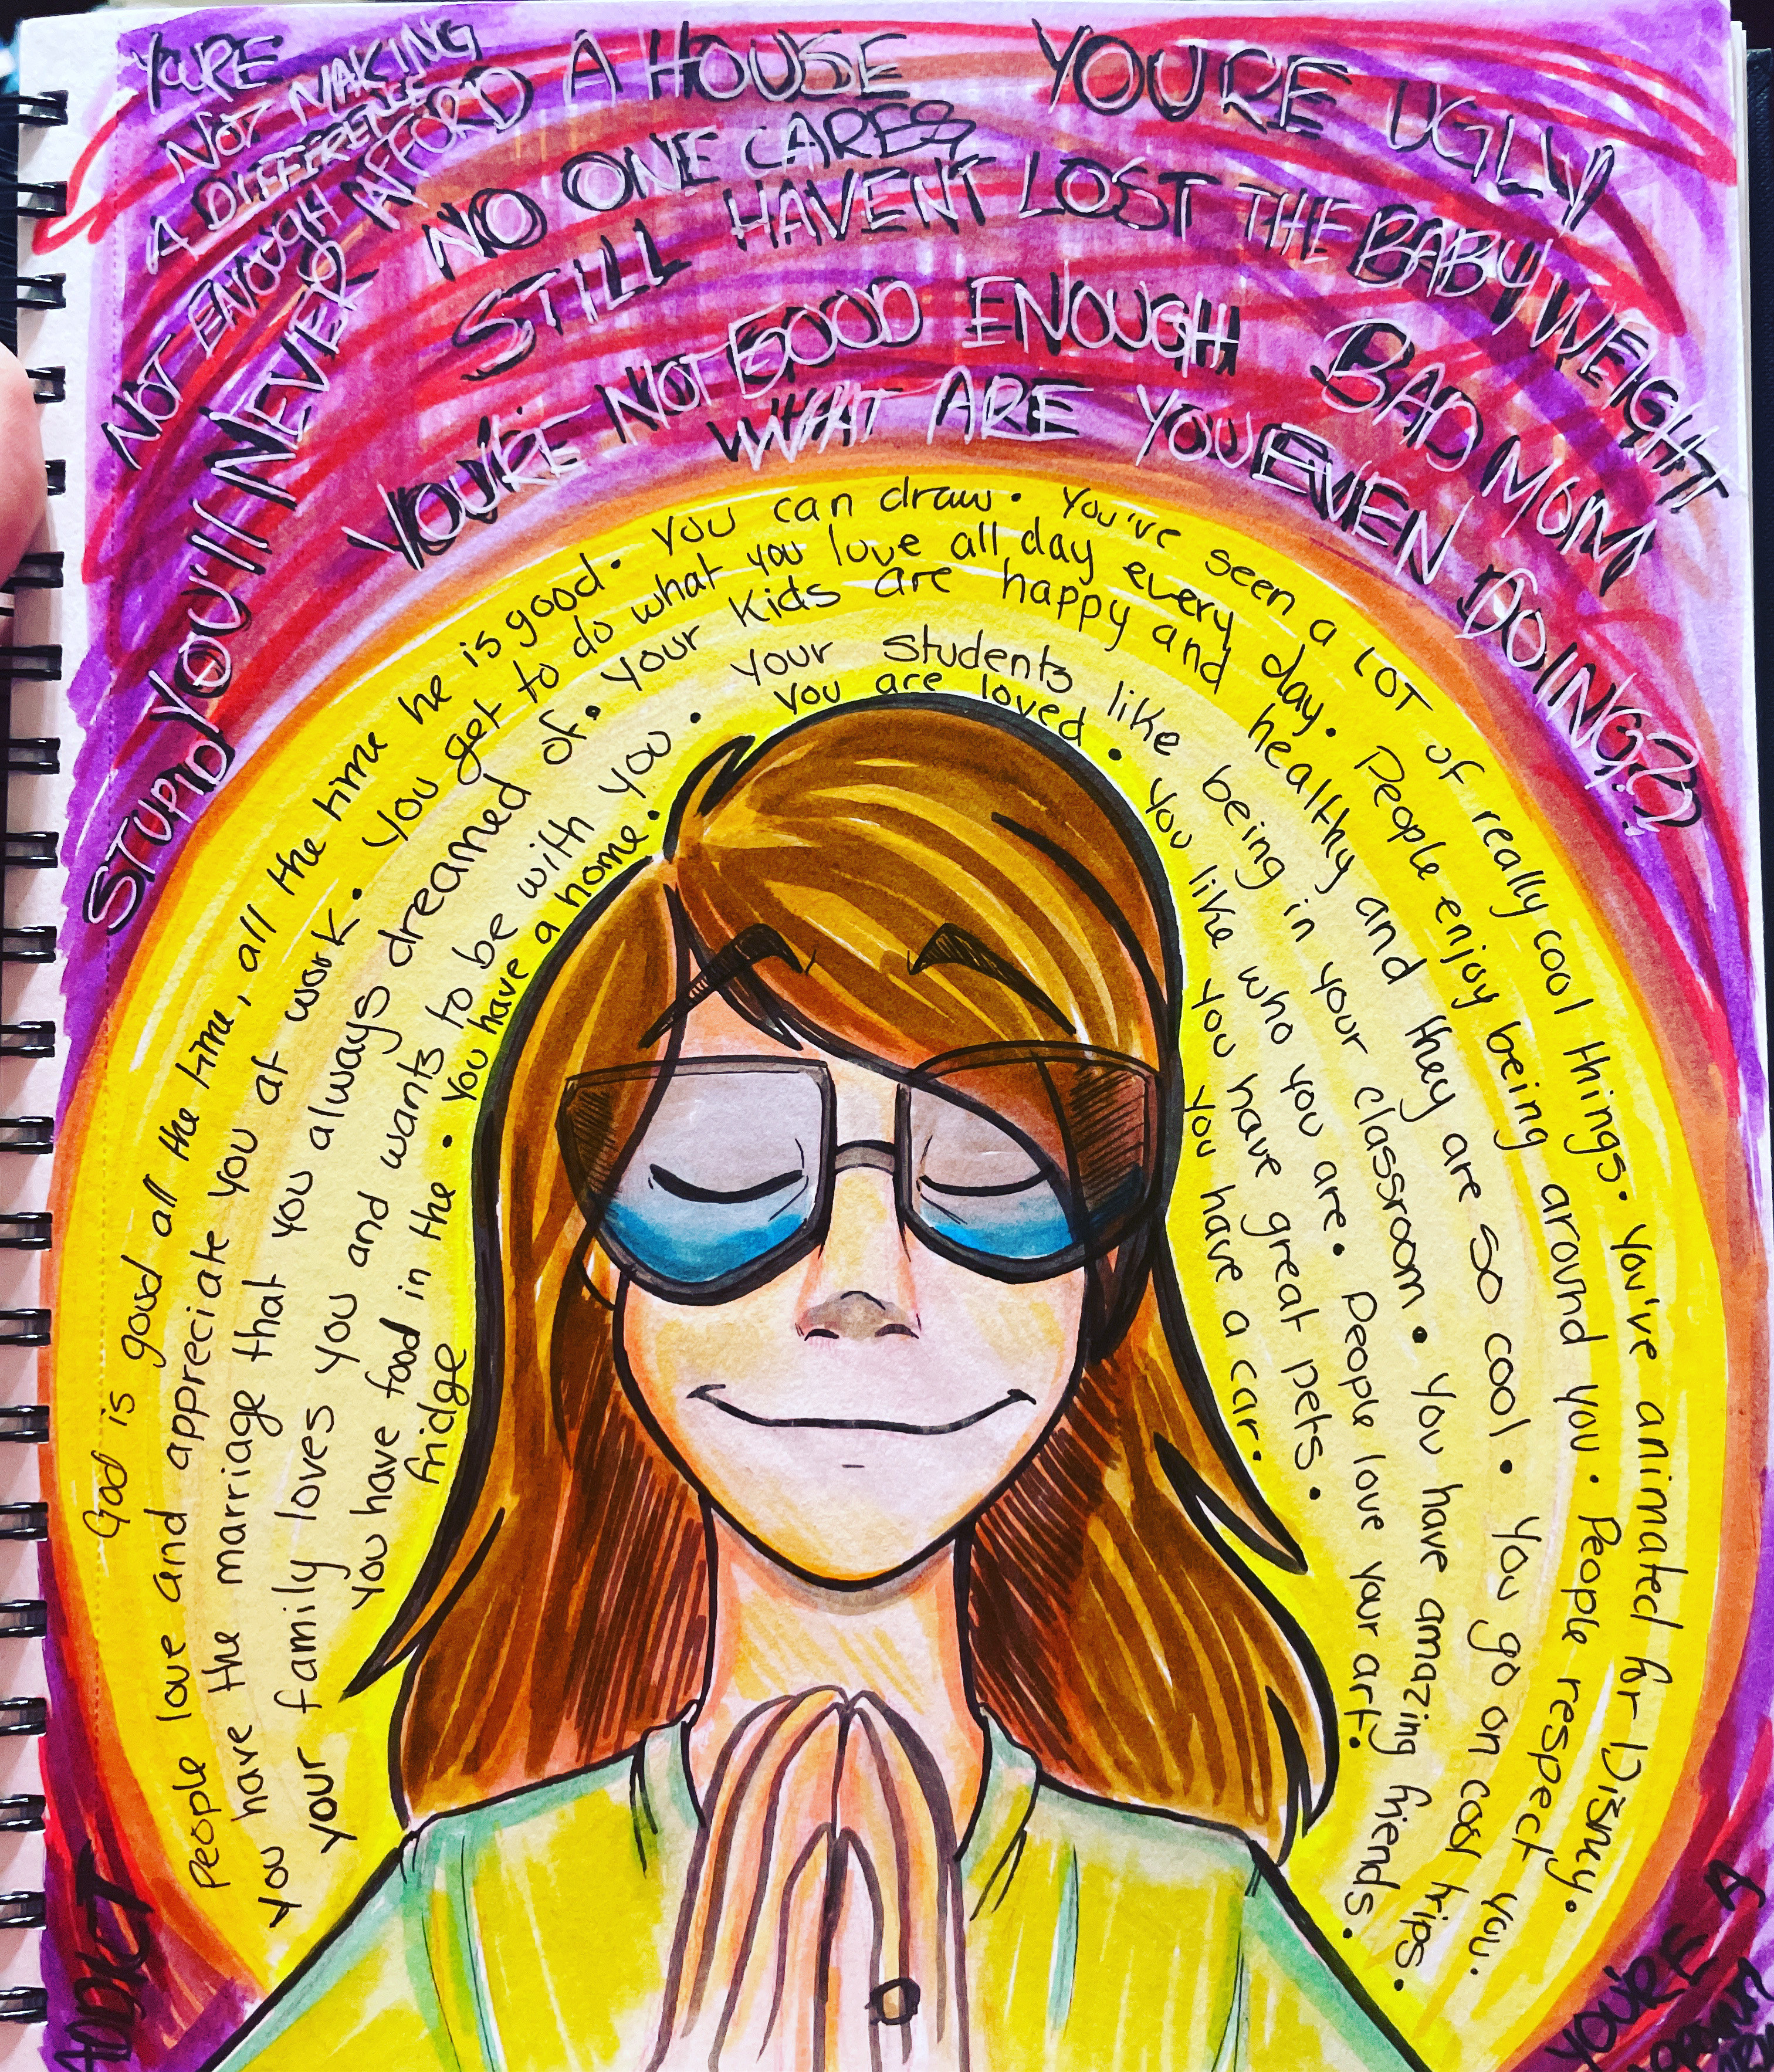 YOU'RE
NOT MAKING
A DIFFERENCE
NOT ENOUGH
STUPID
YOU'll NEVER AFFORD A HOUSE
NO ONE CARES
YOU'RE UGLY
STILL HAVEN'T LOST THE BABY WEIGHT
YOU'RE NOT GOOD ENOUGH
BAD MOM
WHAT ARE YOU EVEN DOING??
God is good all the time, all the time he is good. You can draw. You've seen a LOT of really cool things. You've animated for Disney.
People love and appreciate you at work. You get to do what you love all day every day. People enjoy being around you. People respect you.
You have the marriage that you always dreamed of. Your kids are happy and healthy and they are so cool. You go on cool trips.
Your family loves you and wants to be with you. Your students like being in your classroom. You have amazing friends.
You have food in the fridge. You have a home. You are loved. You like who you are. People love your art.
You like You have great pets.
You have a car.
ADDICT
YOU'RE A